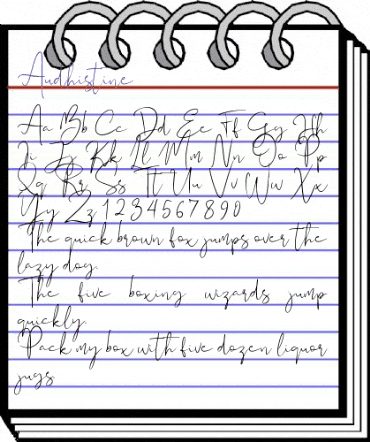 Audhistine
Aa Bb Cc Dd Ee Ff Gg Hh
Ii Jj Kk Ll Mm Nn Oo Pp
Qq Rr Ss Tt Uu Vv Ww Xx
Yy Zz 1234567890
The quick brown fox jumps over the
lazy dog.
The five boxing wizards jump
quickly.
Pack my box with five dozen liquor
jugs